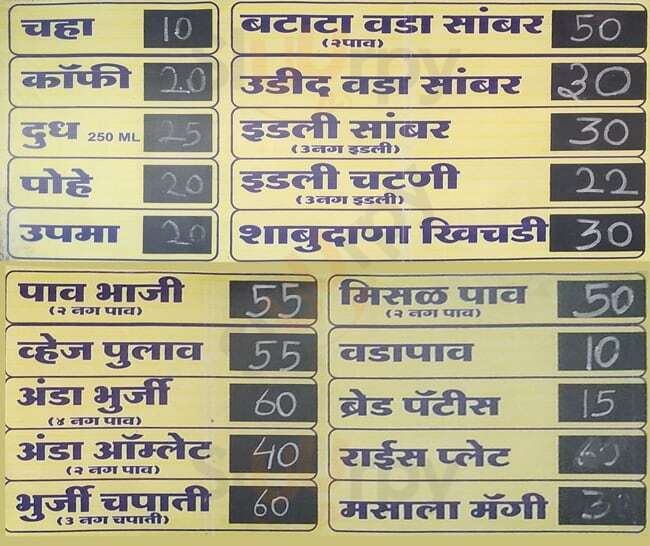 चहा 10
कॉफी 20
दुध 250 ML 25
पोहे 20
उपमा 20
बटाटा वडा सांबर 50
(२पाव)
उडीद वडा सांबर 30
इडली सांबर 30
(३नग इडली)
इडली चटणी 22
(३नग इडली)
शाबुदाणा खिचडी 30
पाव भाजी 55
(२ नग पाव)
व्हेज पुलाव 55
अंडा भुर्जी 60
(४ नग पाव)
अंडा ऑम्लेट 40
(२ नग पाव)
भुर्जी चपाती 60
(३ नग चपाती)
मिसळ पाव 50
(२ नग पाव)
वडापाव 10
ब्रेड पॅटीस 15
राईस प्लेट
मसाला मॅगी